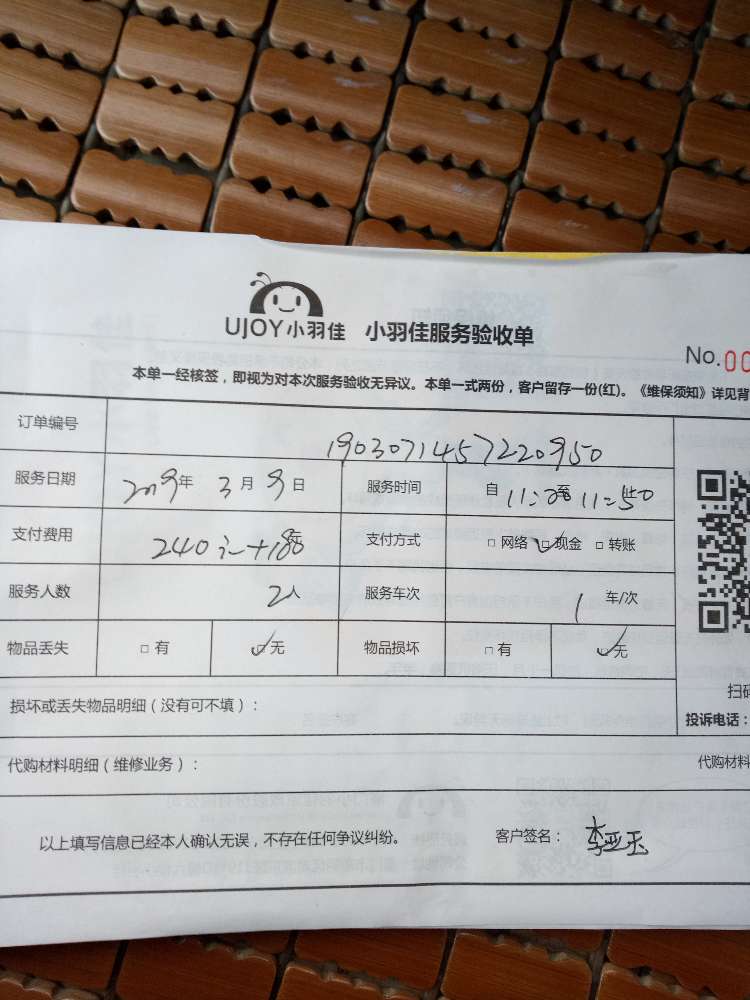 UJOY小羽佳 小羽佳服务验收单
No.00
本单一经核签，即视为对本次服务验收无异议。本单一式两份，客户留存一份(红)。《维保须知》详见背
订单编号 1903071457220950
服务日期 2019年 3月 9日 服务时间 自 11:20至 11:50
支付费用 240 支付方式 □ 网络 ☑ 现金 □ 转账
服务人数 2人 服务车次 1 车/次
物品丢失 □ 有 ☑ 无 物品损坏 □ 有 ☑ 无
损坏或丢失物品明细（没有可不填）：
扫码
投诉电话：
代购材料明细（维修业务）：
代购材料
以上填写信息已经本人确认无误，不存在任何争议纠纷。 客户签名：李亚玉